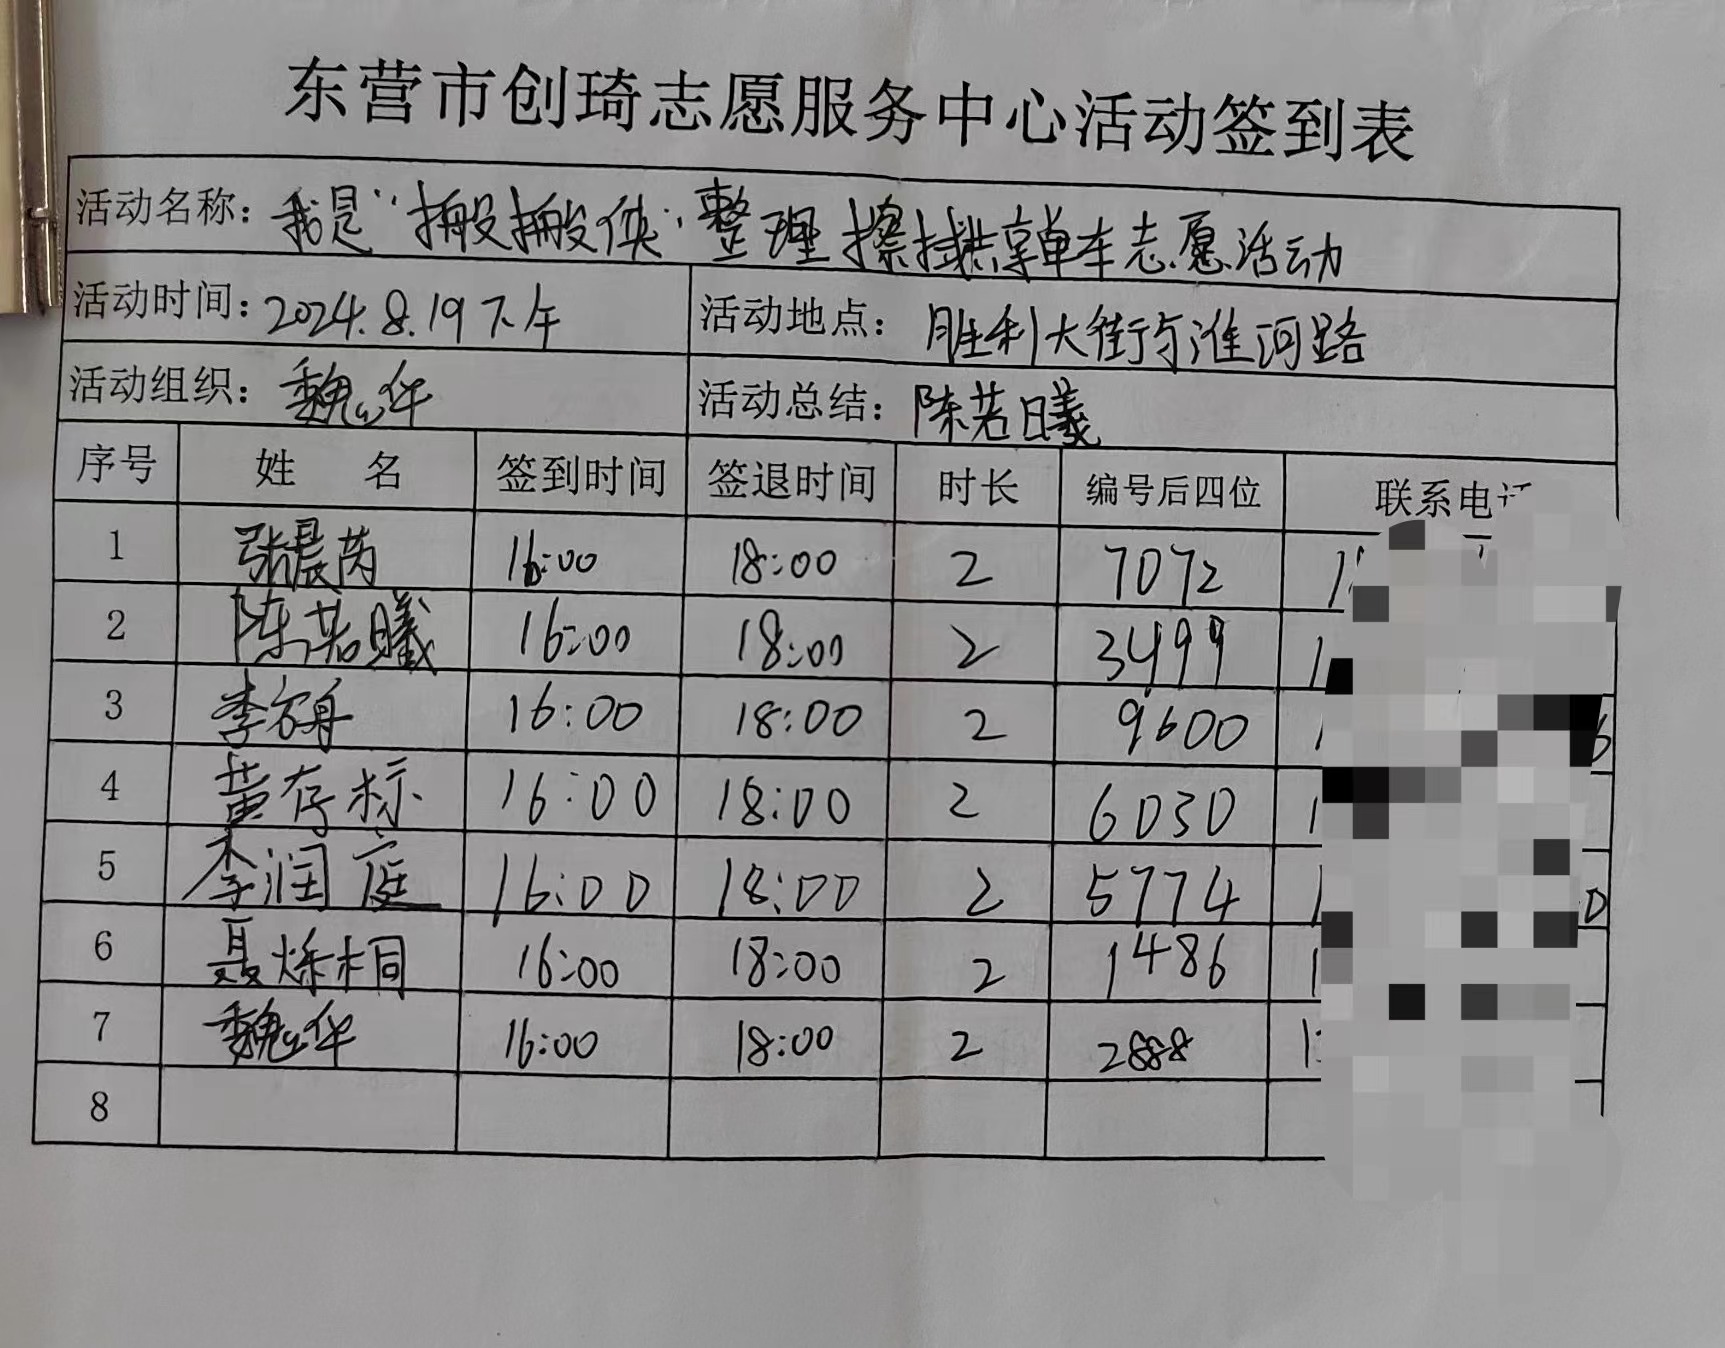 东营市创琦志愿服务中心活动签到表
活动名称：我是“搬搬侠”整理擦拭共享单车志愿活动
活动时间：2024.8.19下午 活动地点：胜利大街与淮河路
活动组织：魏华 活动总结：陈若曦
序号 姓 名 签到时间 签退时间 时长 编号后四位 联系电
1 张晨芮 16:00 18:00 2 7072
2 陈若曦 16:00 18:00 2 3499
3 李 16:00 18:00 2 9600
4 黄存标 16:00 18:00 2 6030
5 李润庭 16:00 18:00 2 5774
6 聂烁桐 16:00 18:00 2 1486
7 魏华 16:00 18:00 2 2888
8